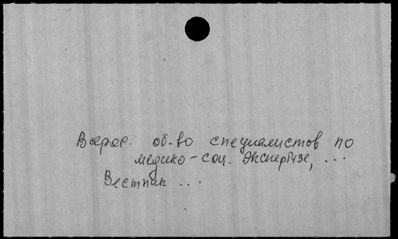 Всерос. об-во специалистов по
медико-соц. экспертизе, ...
Вестник ...